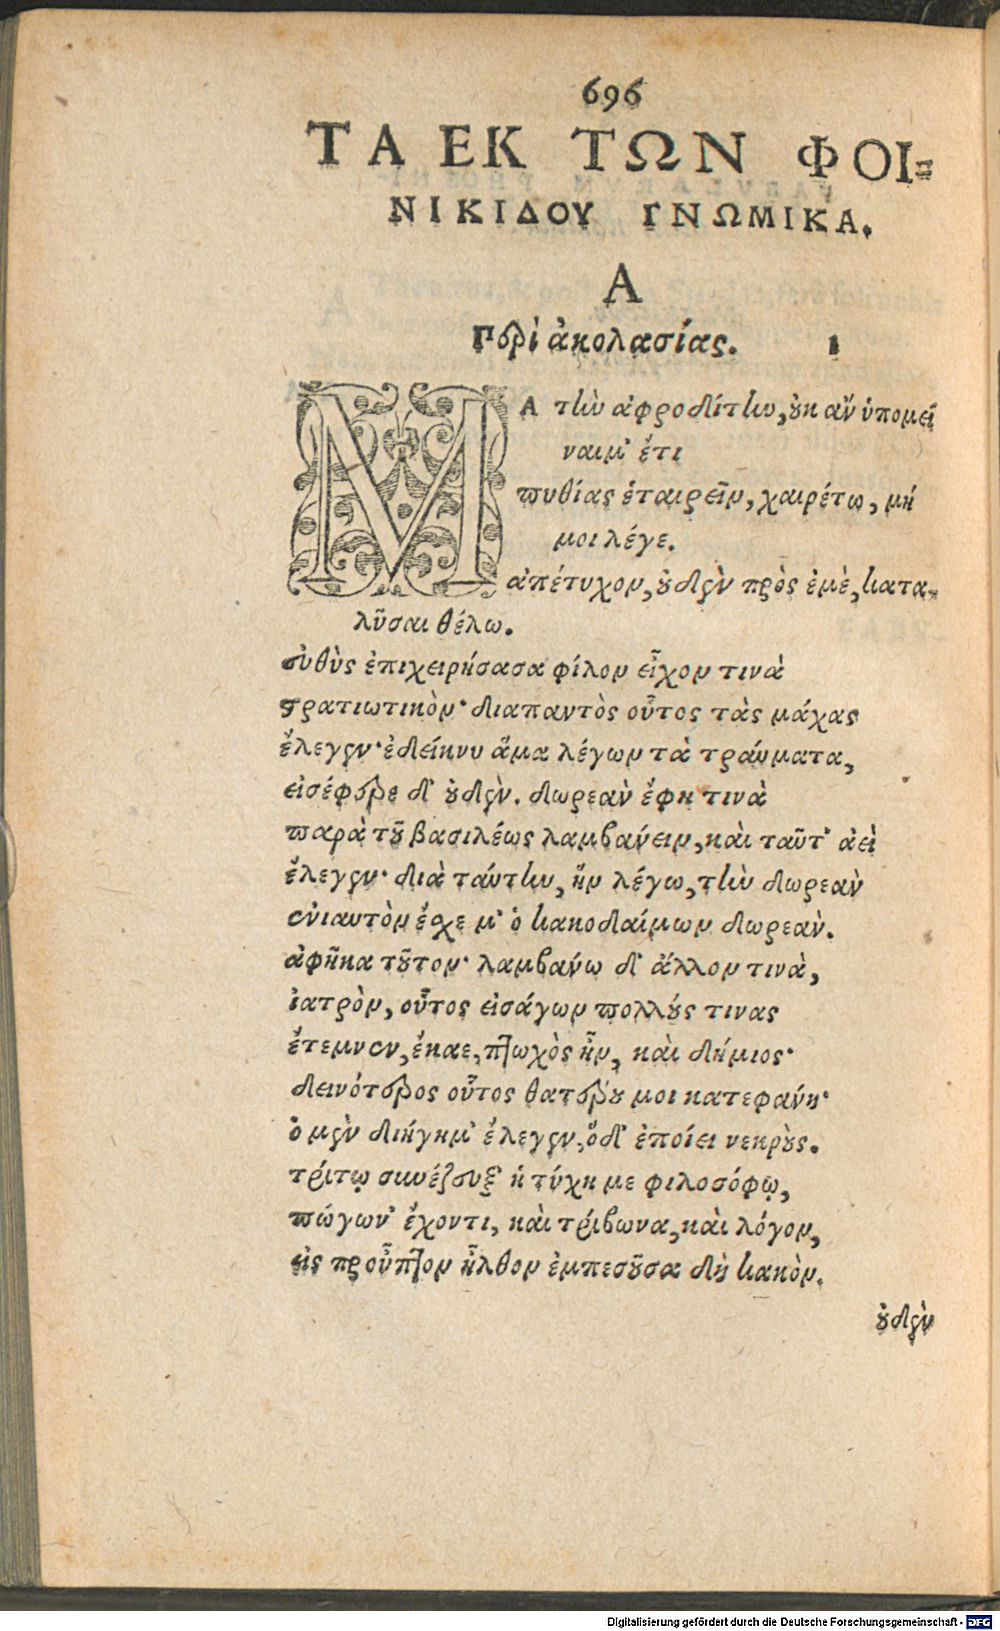 696
ΤΑ ΕΚ ΤΩΝ ΦΟΙ=
ΝΙΚΙΔΟΥ ΓΝΩΜΙΚΑ.
Α
Περὶ ἀκολασίας. 1
ΜΑ τὴν ἀφροδίτην, οὐκ ἂν ὑπομεί
ναιμ' ἔτι
πυθίας ἑταιρεῖν, χαιρέτω, μή
μοι λέγε.
ἀπέτυχον, οὐδὲν πρὸς ἐμὲ, κατα-
λῦσαι θέλω.
εὐθὺς ἐπιχειρήσασα φίλον εἶχον τινὰ
στρατιωτικὸν· διαπαντὸς οὗτος τὰς μάχας
ἔλεγεν· ἐδείκνυ ἅμα λέγων τὰ τραύματα,
εἰσέφερε δ' οὐδὲν. δωρεὰν ἔφη τινὰ
παρὰ τοῦ βασιλέως λαμβάνειν, καὶ ταῦτ' ἀεὶ
ἔλεγεν· διὰ ταύτην, ἣν λέγω, τὴν δωρεὰν
ἐνιαυτὸν ἔσχε μ' ὁ κακοδαίμων δωρεὰν.
ἀφῆκα τοῦτον· λαμβάνω δ' ἄλλον τινὰ,
ἰατρὸν, οὗτος εἰσάγων πολλούς τινας
ἔτεμνεν, ἔκαε, πτωχὸς ἦν, καὶ δήμιος·
δεινότερος οὗτος θατέρου μοι κατεφάνη·
ὁ μὲν διήγημ' ἔλεγεν, ὁ δ' ἐποίει νεκροὺς.
τρίτῳ συνέζευξ' ἡ τύχη με φιλοσόφῳ,
πώγων' ἔχοντι, καὶ τρίβωνα, καὶ λόγον,
εἰς προὖπτον ἦλθον ἐμπεσοῦσα δὴ κακὸν.
οὐδὲν
Digitalisierung gefördert durch die Deutsche Forschungsgemeinschaft - DFG